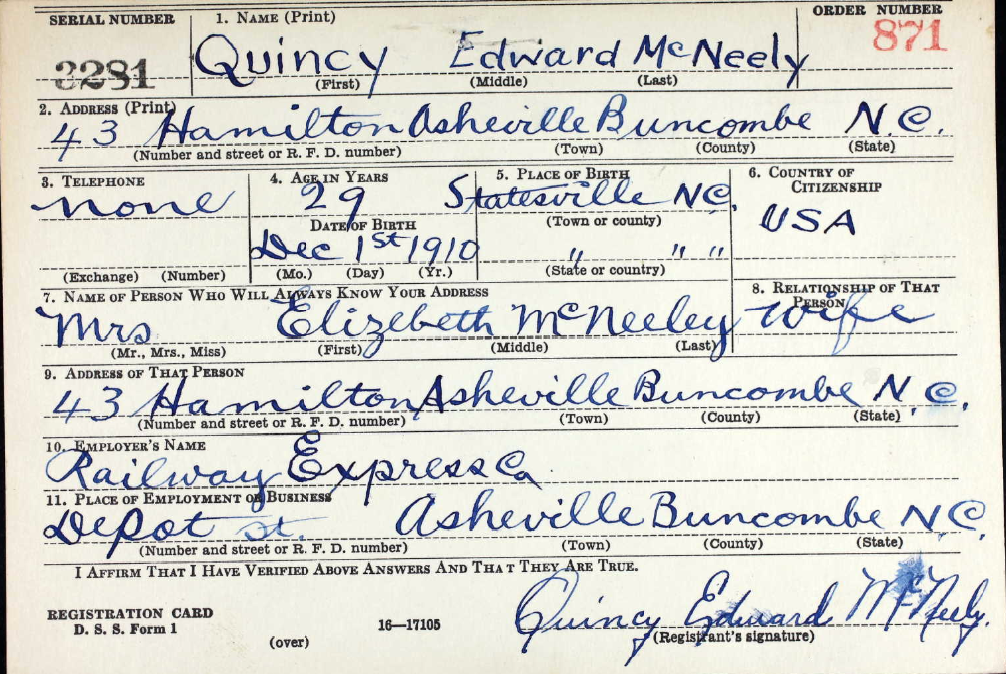 SERIAL NUMBER 1. NAME (Print) ORDER NUMBER
3281 Quincy Edward McNeely 871
(First) (Middle) (Last)
2. ADDRESS (Print)
43 Hamilton Asheville Buncombe N.C.
(Number and street or R. F. D. number) (Town) (County) (State)
3. TELEPHONE 4. AGE IN YEARS 5. PLACE OF BIRTH 6. COUNTRY OF CITIZENSHIP
none 29 Statesville NC. USA
DATE OF BIRTH (Town or county)
Dec 1st 1910 " " "
(Exchange) (Number) (Mo.) (Day) (Yr.) (State or country)
7. NAME OF PERSON WHO WILL ALWAYS KNOW YOUR ADDRESS 8. RELATIONSHIP OF THAT PERSON
Mrs Elizebeth McNeeley wife
(Mr., Mrs., Miss) (First) (Middle) (Last)
9. ADDRESS OF THAT PERSON
43 Hamilton Asheville Buncombe N.C.
(Number and street or R. F. D. number) (Town) (County) (State)
10. EMPLOYER'S NAME
Railway Express Co
11. PLACE OF EMPLOYMENT OR BUSINESS
Depot St. Asheville Buncombe N.C.
(Number and street or R. F. D. number) (Town) (County) (State)
I AFFIRM THAT I HAVE VERIFIED ABOVE ANSWERS AND THAT THEY ARE TRUE.
Quincy Edward McNeely.
REGISTRATION CARD
D. S. S. Form 1 16—17105 (Registrant's signature)
(over)